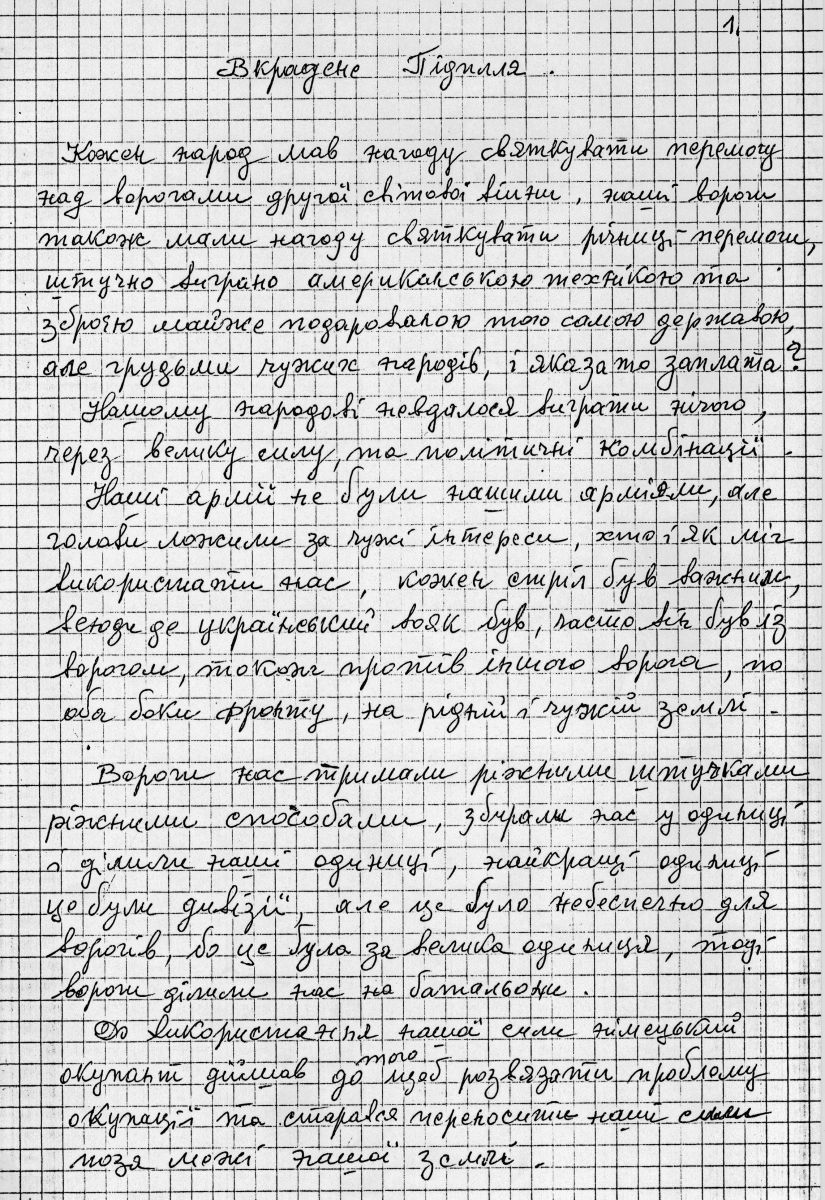 1.
Вкрадене Підпілля.
Кожен народ мав нагоду святкувати перемогу
над ворогами другої світової війни, наші вороги
також мали нагоду святкувати річниці перемоги,
штучно виграно американською технікою та
зброєю майже подаровалою тою самою державою,
але грудьми чужих народів, і яка за то заплата?
Нашому народові невдалося виграти нічого,
через велику силу, та політичні комбінації.
Наші армії не були нашими арміями, але
голови ложили за чужі інтереси, хто і як міг
використати нас, кожен стріл був важним,
всюди де український вояк був, часто він був із
ворогом, також протів іншого ворога, по
оба боки фронту, на рідній і чужій землі.
Вороги нас тримали ріжними штучками
ріжними способами, збирали нас у одиниці
і ділили наші одиниці, найкращі одиниці
це були дивізії, але це було небеспечно для
ворогів, бо це була за велика одиниця, тоді
вороги ділили нас на батальони.
До використання нашої сили німецький
окупант дійшов до того щоб розвязати проблему
окупації та старався переносити наші сили
поза межі нашої землі.